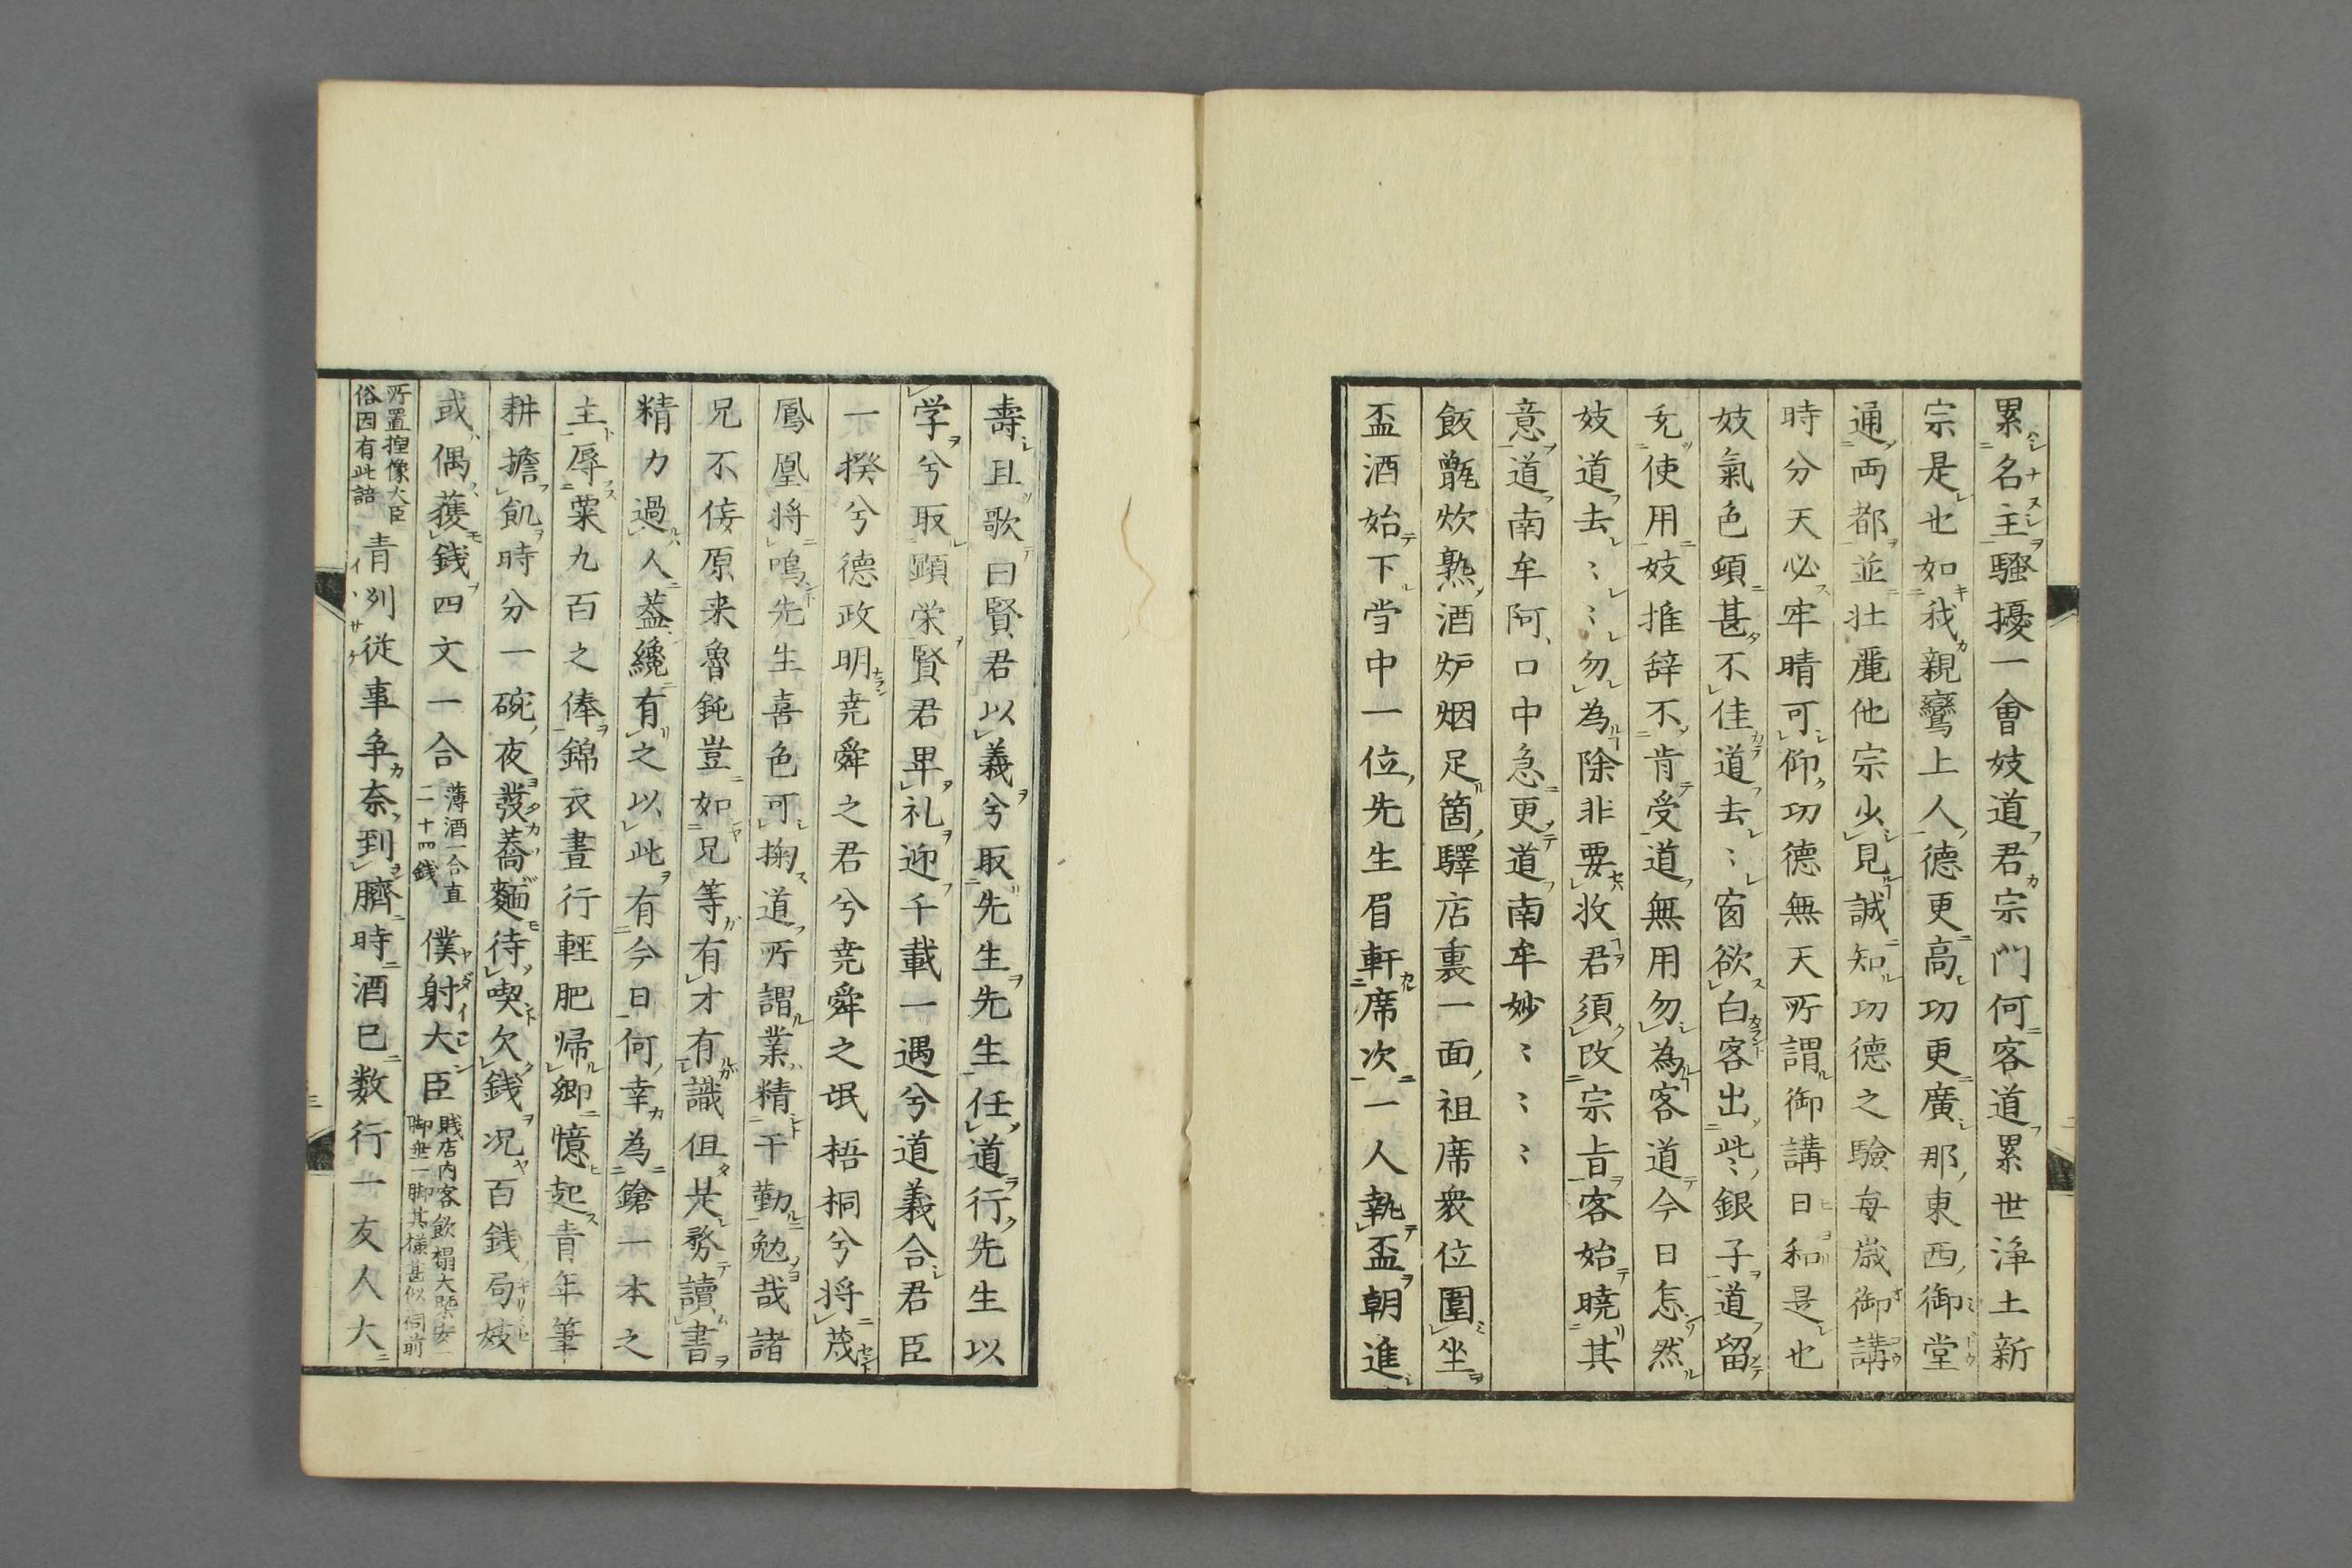 累名主騒擾一會妓道君宗門何客道累世浄土新
宗是也如我親鸞上人德更高功更廣那東西御堂
通両都並壮麗他宗少見誠知功德之驗每歲御講
時分天必牢晴可仰功德無天所謂御講日和是也
妓氣色頓甚不佳道去〻窗欲白客出此〻銀子道留
充使用妓推辞不肯受道無用勿為客道今日怎然
妓道去〻〻勿為除非要收君須改宗旨客始曉其
意道南牟阿口中急更道南牟妙〻〻〻
飯甑炊熟酒炉烟足箇驛店裏一面祖席衆位圍坐
盃酒始下當中一位先生眉軒席次一人執盃朝進
壽且歌曰賢君以義兮取先生先生任道行先生以
学兮取顕栄賢君畢礼迎千載一遇兮道義合君臣
一揆兮德政明尭舜之君兮尭舜之氓梧桐兮将茂
鳳凰将鳴先生喜色可掬道所謂業精于勤勉哉諸
兄不佞原来魯鈍豈如兄等有才有識但是務讀書
精力過人葢纔有之以此有今日何幸為鎗一本之
主辱粟九百之俸錦衣晝行軽肥帰郷憶起青年筆
耕擔飢時分一碗夜發蕎麵待喫欠錢况百錢局妓
或偶獲錢四文一合薄酒一合直二十四錢僕射大臣賤店内客飲榻大槩安一脚垂一脚其様甚似祠前
所置揑像大臣俗因有此諳青列從事争奈到臍時酒已数行一友人大